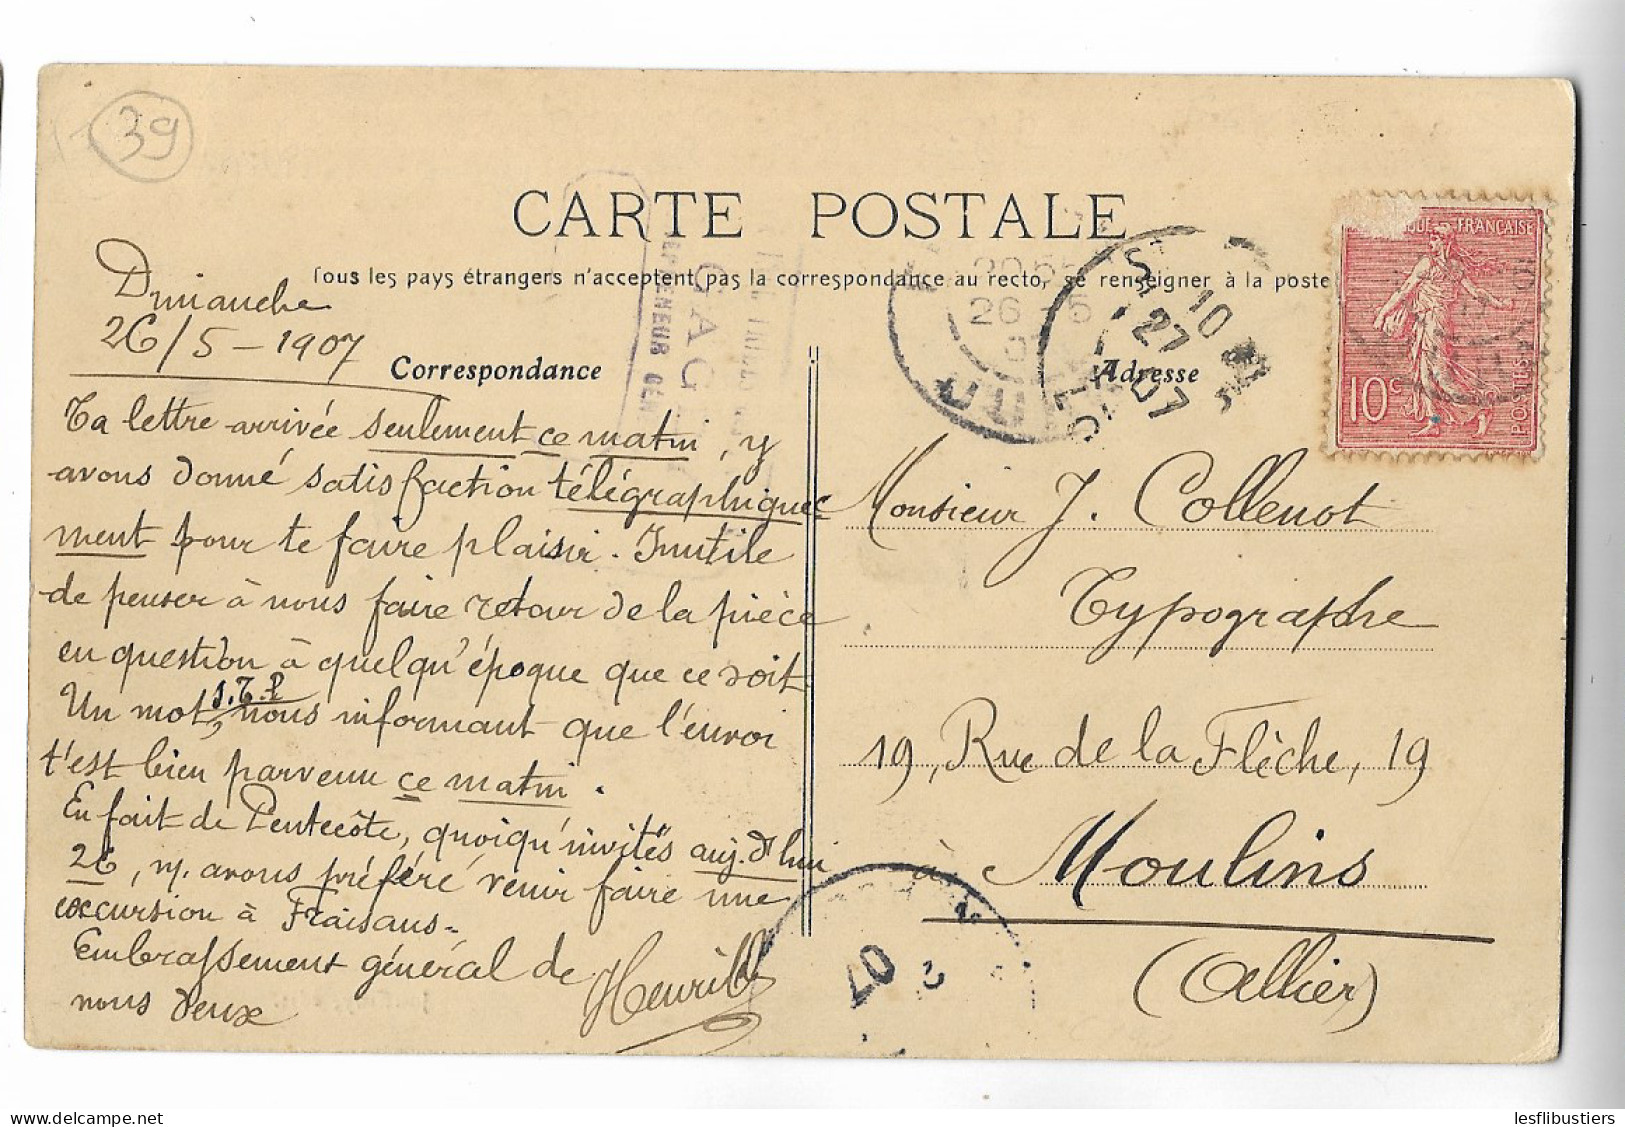 39
CARTE POSTALE
Tous les pays étrangers n'acceptent pas la correspondance au recto, se renseigner à la poste
Dimanche
26/5-1907
Correspondance
Ta lettre arrivée seulement ce matin, y
avons donné satisfaction télégraphique-
ment pour te faire plaisir. Inutile
de penser à nous faire retour de la pièce
en question à quelqu'époque que ce soit.
Un mot, s.t.p nous informant que l'envoi
t'est bien parvenu ce matin.
En fait de Pentecôte, quoiqu'invités auj. d'hui
26, n. avons préféré venir faire une
excursion à Fraisans.
Embrassement général de
nous deux
GAG
26 -5
JURA
10
27
07
Adresse
RÉPUBLIQUE FRANÇAISE
10c
POSTES
Monsieur J. Collenot
Typographe
19, Rue de la Flèche, 19
à Moulins
(Allier)
07
lesflibustiers